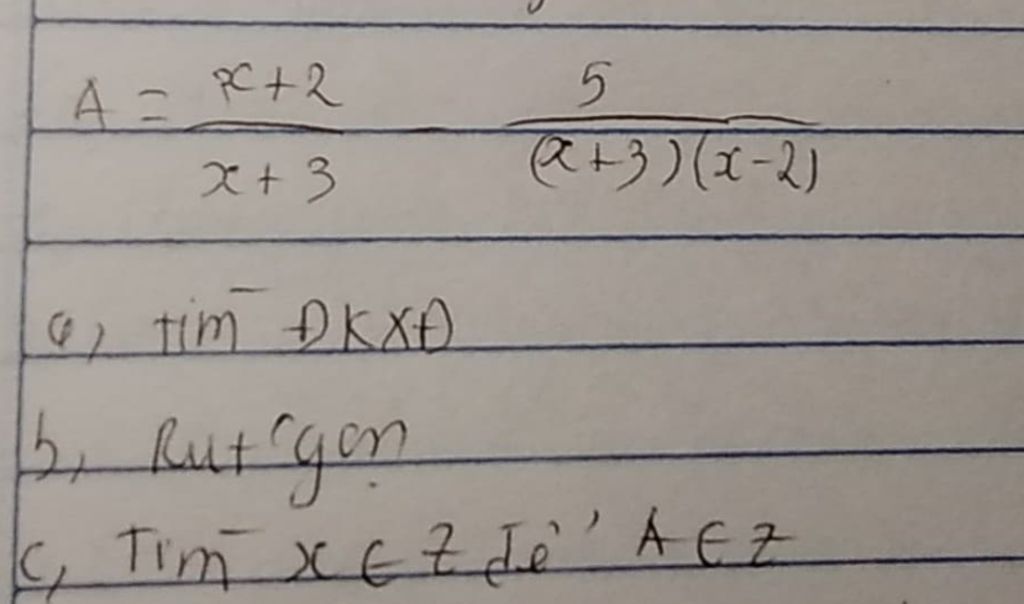 A = \frac{x+2}{x+3} - \frac{5}{(x+3)(x-2)}
a, tìm ĐKXĐ
b, Rút gọn
c, Tìm x ∈ Z để A ∈ Z